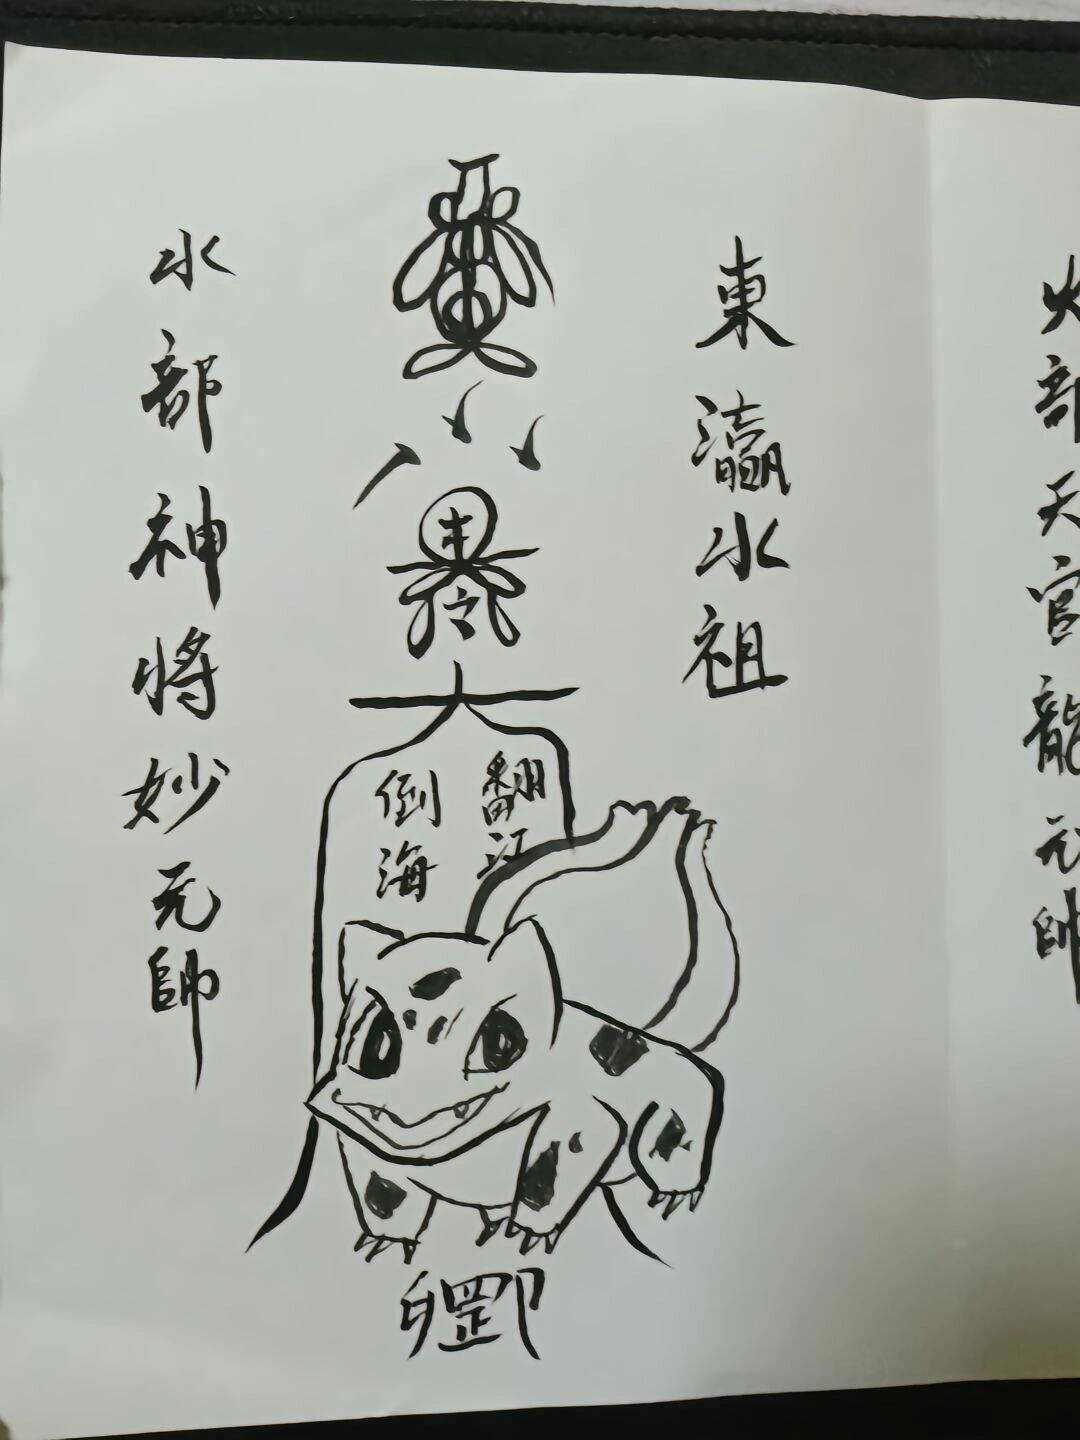 火部天官龍元帥
東瀛水祖
敕令
翻江
倒海
罡
水部神將妙元帥